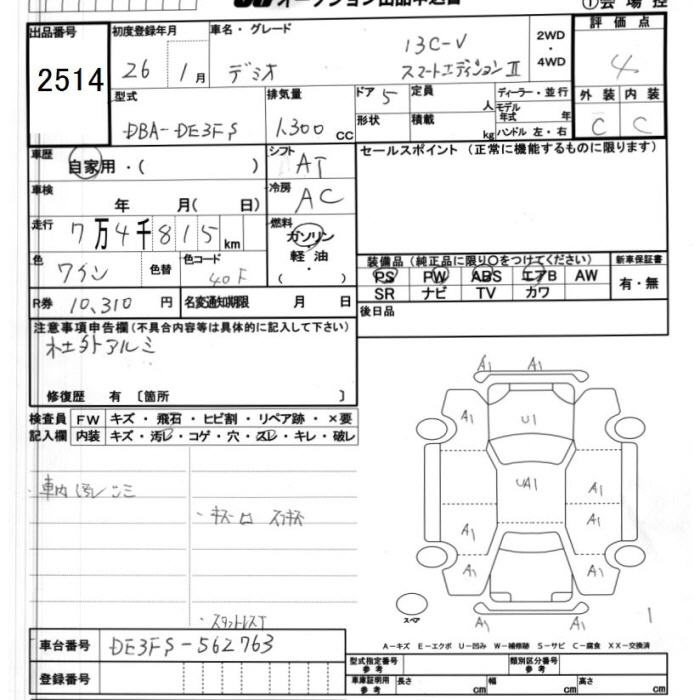 オークション出品申込書
①会場控
出品番号 初度登録年月 車名・グレード 2WD・4WD 評価点
2514 26年 1月 デミオ 13C-V スマートエディションⅡ 4
型式 排気量 ドア 5 定員 人 ディーラー・並行 外装 内装
DBA-DE3FS 1,300 cc 形状 積載 kg モデル年式 年 ハンドル 左・右 C C
車歴 自家用・( ) シフト AT セールスポイント (正常に機能するものに限ります)
車検 年 月( 日) 冷房 AC
走行 7万4千815km 燃料 ガソリン 軽油 ・ ( )
装備品(純正品に限り○をつけてください) 新車保証書
色 ワイン 色替 色コード 40F
PS PW ABS エアB AW 有・無
SR ナビ TV カワ
R券 10,310円 名変通知期限 月 日 後日品
注意事項申告欄(不具合内容等は具体的に記入して下さい)
社外アルミ
修復歴 有 〔箇所 〕
検査員 FW キズ・飛石・ヒビ割・リペア跡・×要
記入欄 内装 キズ・汚レ・コゲ・穴・スレ・キレ・破レ
・車内汚レ シミ
A1 A1
A1 U1 A1
UA1 A1
A1 A1
A1 A1
スペア
A1 A1
1
車台番号 DE3FS-562763
A-キズ E-エクボ U-凹み W-補修跡 S-サビ C-腐食 XX-交換済
登録番号
型式指定番号 参考 類別区分番号 参考
車庫証明用 参考 長さ cm 幅 cm 高さ cm